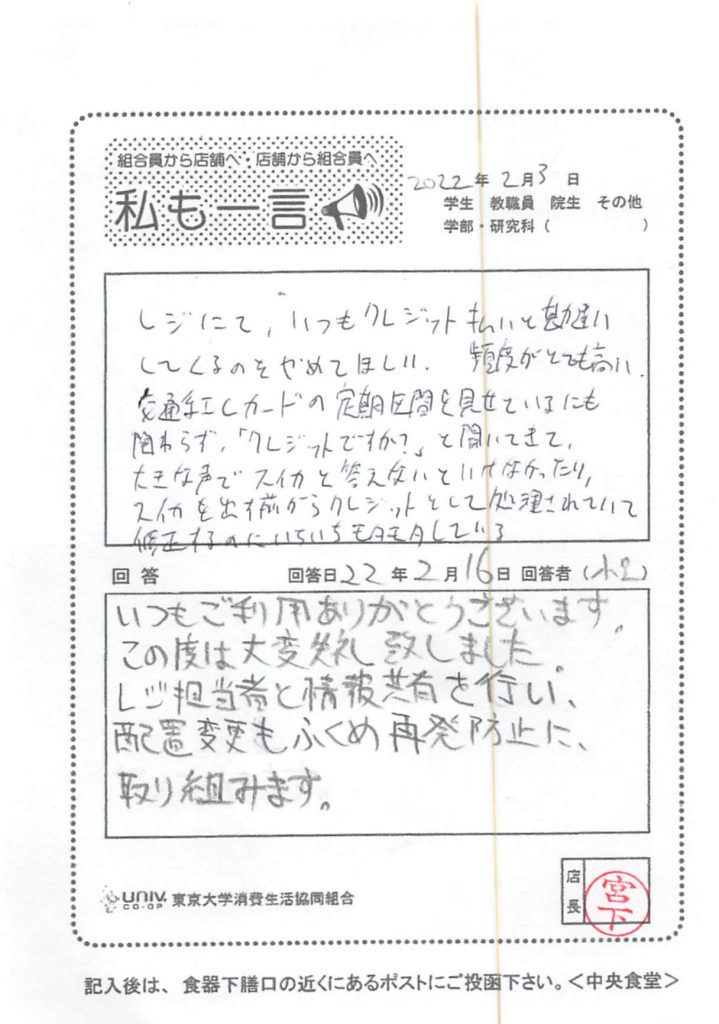 組合員から店舗へ・店舗から組合員へ
私も一言
2022年 2月3日
学生 教職員 院生 その他
学部・研究科( )
レジにて、いつもクレジット払いと勘違い
してくるのをやめてほしい. 頻度がとても高い.
交通系ICカードの定期区間を見せているにも
関わらず,「クレジットですか?」と聞いてきて,
大きな声でスイカと答えないといけなかったり,
スイカを出す前からクレジットとして処理されていて
修正するのにいちいちモタモタしている
回答 回答日22年2月16日 回答者()
いつもご利用ありがとうございます。
この度は大変失礼致しました。
レジ担当者と情報共有を行い、
配置変更もふくめ再発防止に、
取り組みます。
UNIV. CO-OP 東京大学消費生活協同組合
店長 宮下
記入後は、食器下膳口の近くにあるポストにご投函下さい。<中央食堂>